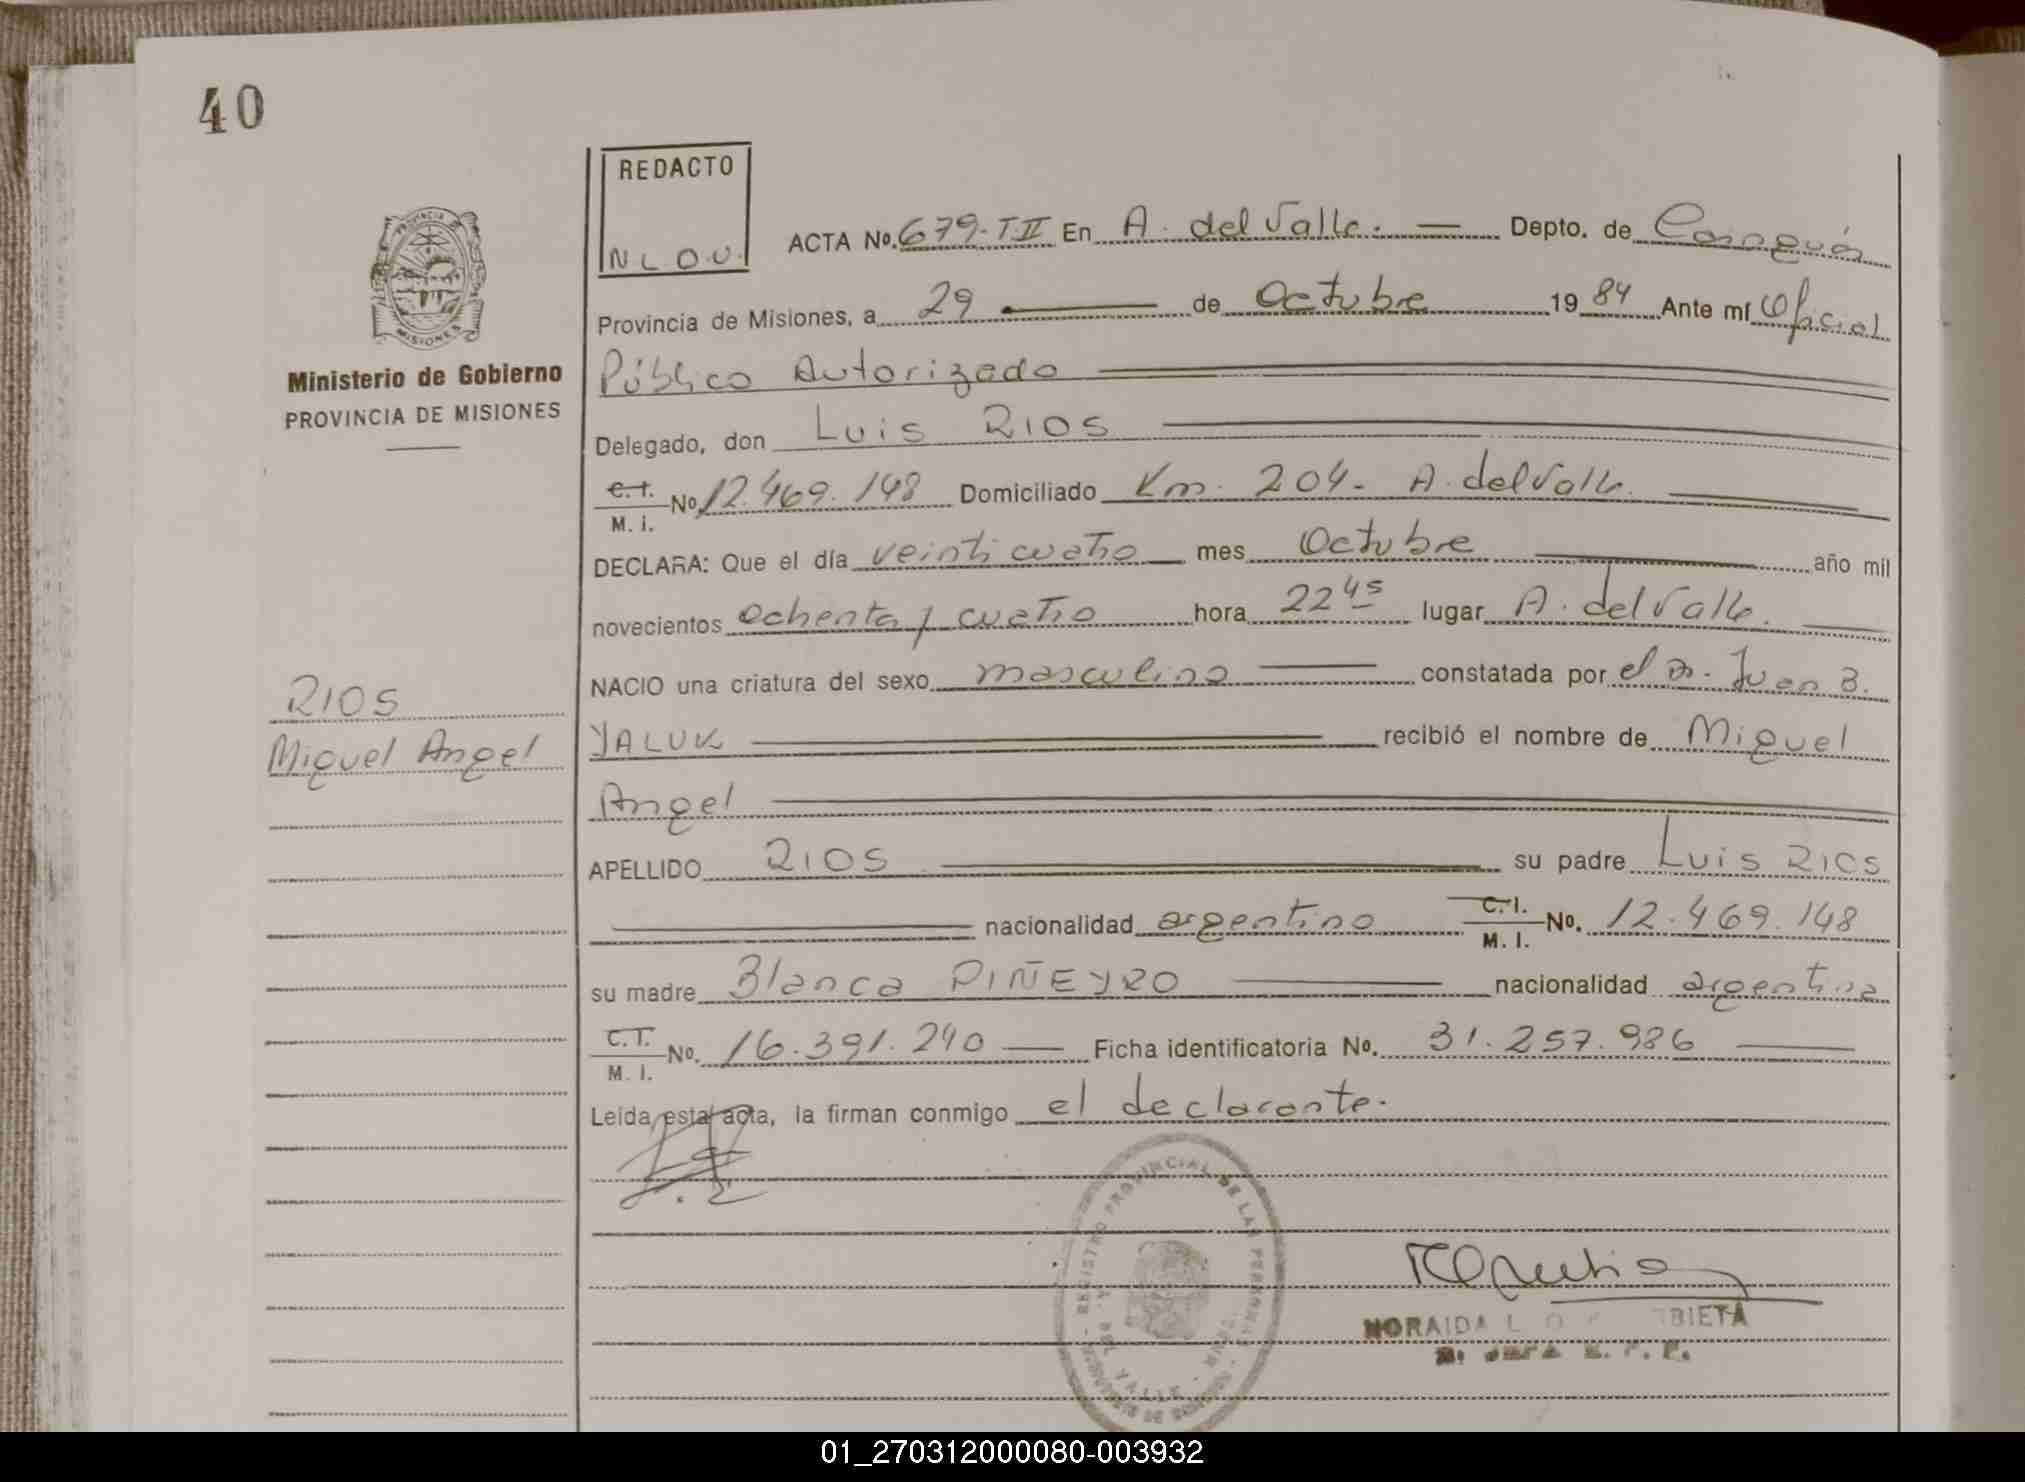 40
REDACTO
N L O U.
ACTA No. 679-T II En A. del Valle. Depto. de Cainguás
Provincia de Misiones, a 29 de Octubre 1984 Ante mí Oficial
Público Autorizado
PROVINCIA
MISIONES
Ministerio de Gobierno
PROVINCIA DE MISIONES
Delegado, don Luis RIOS
C.I. M. I. No. 12.469.148 Domiciliado Km. 204- A. del Valle.
DECLARA: Que el día veinticuatro mes Octubre año mil
novecientos Ochenta y cuatro hora 22 45 lugar A. del Valle.
NACIO una criatura del sexo masculino constatada por el Dr. Juan B.
RIOS
Miguel Angel
YALUK recibió el nombre de Miguel
Angel
APELLIDO RIOS su padre Luis RIOS
nacionalidad argentino C.I. M. I. No. 12.469.148
su madre Blanca PIÑEYRO nacionalidad argentina
C.I. M. I. No. 16.391.240 Ficha identificatoria No. 31.257.986
Leída esta acta, la firman conmigo el declarante.
REGISTRO PROVINCIAL DE LAS PERSONAS
A. DEL VALLE
NORAIDA L. O
JEFA R. P. P.
01_270312000080-003932